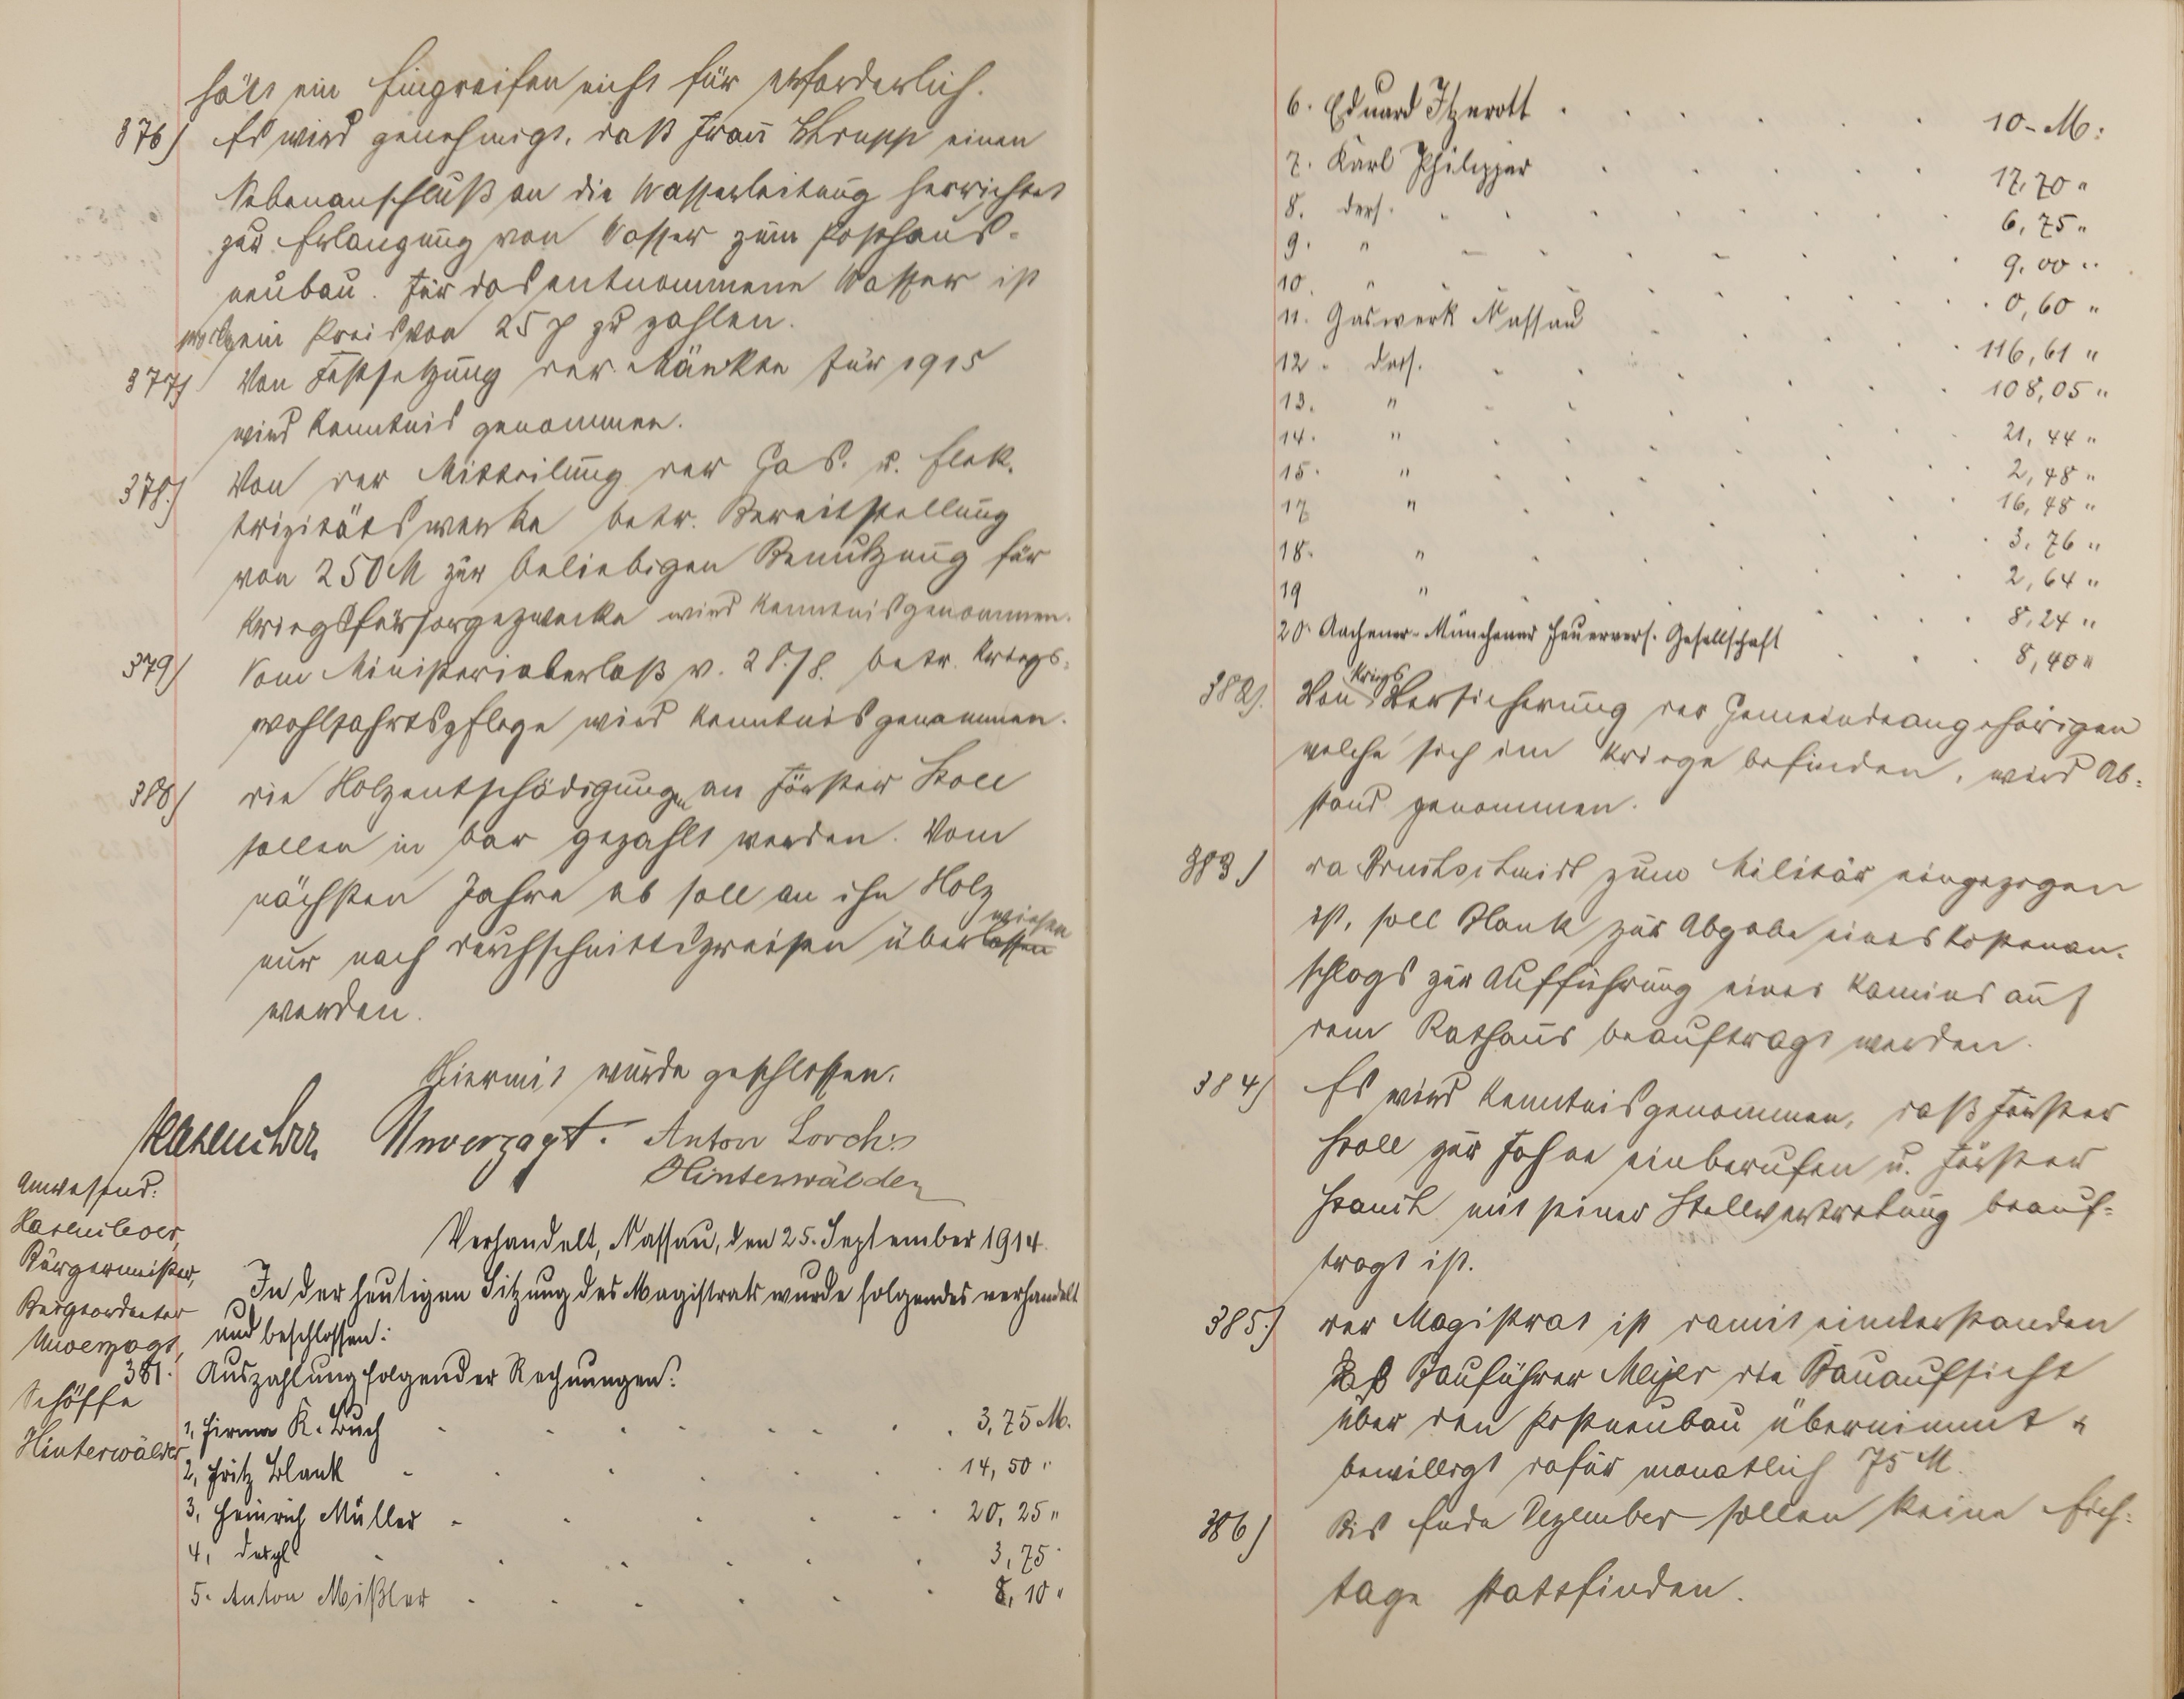 hält ein Eingreifen nicht für erforderlich.
376) Es wird genehmigt, daß Frau Strupp einen
Nebenanschluß an die Wasserleitung herrichtet
zur Erlangung von Wasser zum Posthaus-
neubau. Für das entnommene Wasser ist
pro cbm ein Preis von 25 ₰ zu zahlen.
377) Von Festsetzung der Märkte für 1915
wird Kenntnis genommen.
378.) Von der Mitteilung der Gas. u. Elek.
trizitätswerke betr. Bereitstellung
von 250 M zur beliebigen Benutzung für
Kriegsfürsorgezwecke wird Kenntnis genommen.
379) Vom Ministerialerlaß v. 28./8. betr. Kriegs-
wohlfahrtspflege wird Kenntnis genommen.
380) die Holzentschädigungen an Förster Stoll
sollen in bar gezahlt werden. Vom
nächsten Jahre ab soll an ihn Holz
nur nach Durchschnittspreisen überlassen wiesen
werden.
Hiermit wurde geschlossen.
Hasenclever Unverzagt. Anton Lorch:
Hinterwälder
Anwesend:
Hasenclever,
Bürgermeister,
Beigeordneter
Unverzagt,
Schöffe
Hinterwälder
Verhandelt, Nassau, den 25. September 1914.
In der heutigen Sitzung des Magistrats wurde folgendes verhandelt
und beschlossen:
381. Auszahlung folgender Rechnungen:
1, Firma K. Buch 3,75 M.
2, Fritz Blank 14,50 "
3, Heinrich Müller 20,25 "
4, desgl 3,75
5. Anton Mißler 8,10 "
6. Eduard Itzerott 10- M:
7. Karl Philippar 17,70 "
8. ders. 6,75 "
9. " 9,00 "
10. " 0,60 "
11. Gaswerk Nassau 116,61 "
12. ders. 108,05 "
13. " 21,44 "
14. " 2,48 "
15. " 16,48 "
17 " 3,76 "
18. " 2,64 "
19 " 8,24 "
20. Aachener-Münchener Feuervers. Gesellschaft 8,40 "
382). Von Kriegs Versicherung der Gemeindeangehörigen
welche sich im Kriege befinden, wird Ab-
stand genommen.
383) da zum Militär eingezogen
ist, soll Blank zur Abgabe eines Kostenan-
schlags zur Aufführung eines Kamins auf
dem Rathaus beauftragt werden.
384) Es wird Kenntnis genommen, daß Förster
Stoll zur Fahne einberufen u. Förster
mit seiner Stellvertretung beauf-
tragt ist.
385.) der Magistrat ist damit einverstanden
daß Bauführer Meijer die Bauaufsicht
über den Postneubau übernimmt u
bewilligt dafür monatlich 75 M.
386) Bis Ende Dezember sollen keine Eich-
tage stattfinden.